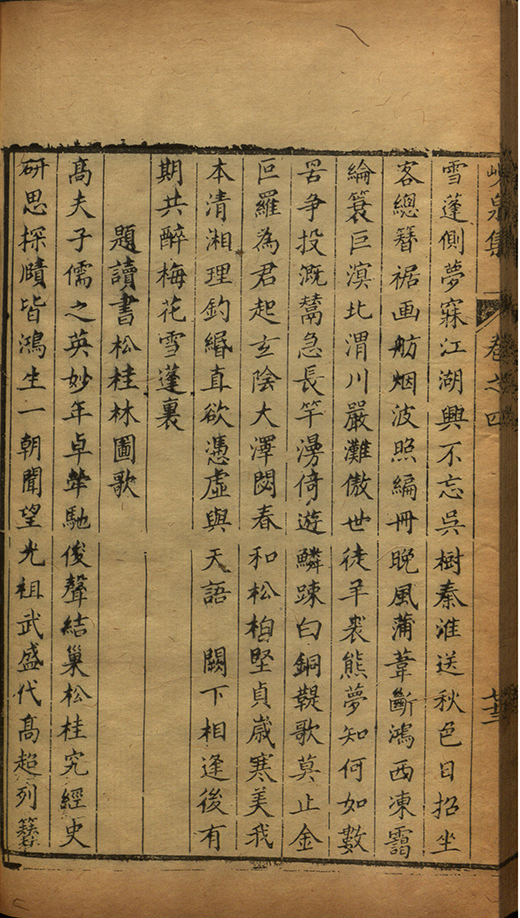 峴泉集 卷之四 廿三
雪蓬側夢寐江湖興不忘吳樹秦淮送秋色日招坐
客總簪裾画舫烟波照編冊晚風蒲葦斷鴻西凍靄
綸簑巨濱北渭川嚴灘傲世徒羊裘熊夢知何如數
罟爭投溉鬵急長竿漫倚遊鱗踈白銅鞮歌莫止金
叵羅為君起玄陰大澤閟春和松柏堅貞歲寒美我
本清湘理釣緡直欲憑虛與天語 闕下相逢後有
期共醉梅花雪蓬裏
題讀書松桂林圖歌
髙夫子儒之英妙年卓犖馳俊聲結巢松桂究經史
研思探賾皆鴻生一朝聞望光祖武盛代髙超列簪